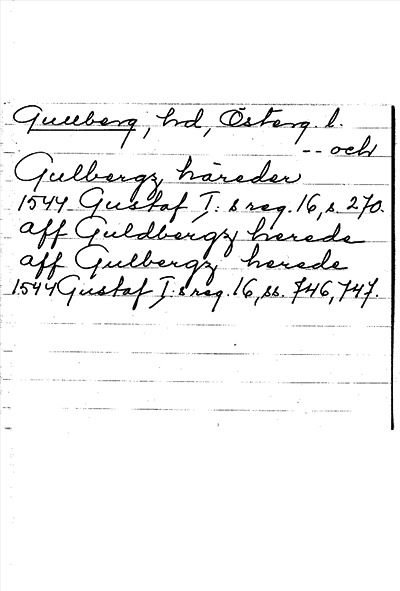 Gullberg, hd, Österg. l.
-- och
Gulbergz häreder
1544 Gustaf I:s reg. 16, s. 270.
aff Guldbergz herede
aff Gulbergz herede
1544 Gustaf I:s reg. 16, ss. 746, 747.